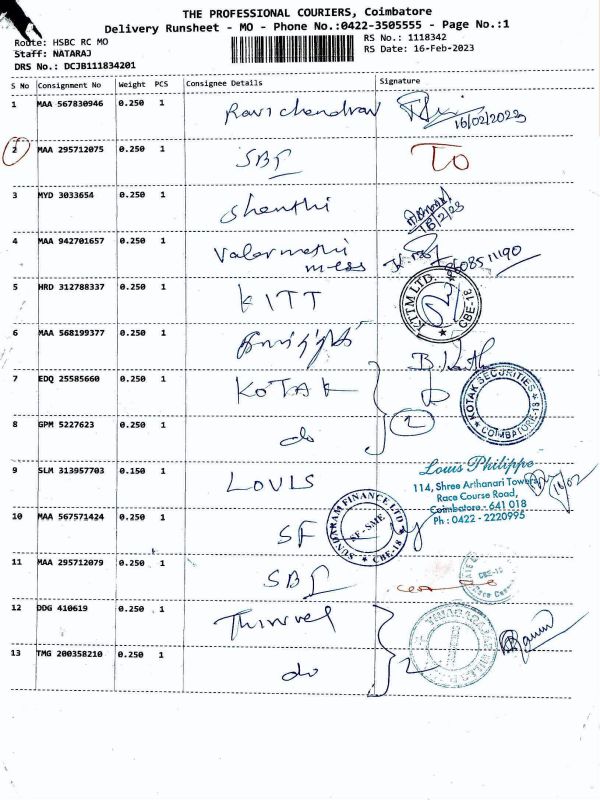 THE PROFESSIONAL COURIERS, Coimbatore
Delivery Runsheet - MO - Phone No.:0422-3505555 - Page No.:1
Route: HSBC RC MO
Staff: NATARAJ
DRS No.: DCJB111834201
RS No.: 1118342
RS Date: 16-Feb-2023
S No Consignment No Weight PCS Consignee Details Signature
1 MAA 567830946 0.250 1 Ravichandran 16/02/2023
2 MAA 295712075 0.250 1 SBI TO
3 MYD 3033654 0.250 1 Shanthi
4 MAA 942701657 0.250 1 Valarmathi
mess
5 HRD 312788337 0.250 1 KITT KTTM LTD. CBE-18
6 MAA 568199377 0.250 1
7 EDQ 25585660 0.250 1 KOTAK 2 KOTAK SECURITIES COIMBATORE-18
8 GPM 5227623 0.250 1 do
9 SLM 313957703 0.150 1 LOUIS Louis Philippe
114, Shree Arthanari Towers
Race Course Road,
Coimbatore - 641 018
Ph : 0422 - 2220995
16/02
10 MAA 567571424 0.250 1 SF SUNDARAM FINANCE LTD SF-SME CBE-18
11 MAA 295712079 0.250 1 SBI CBE-18
12 DDG 410619 0.250 1
13 TMG 200358210 0.250 1 do 2